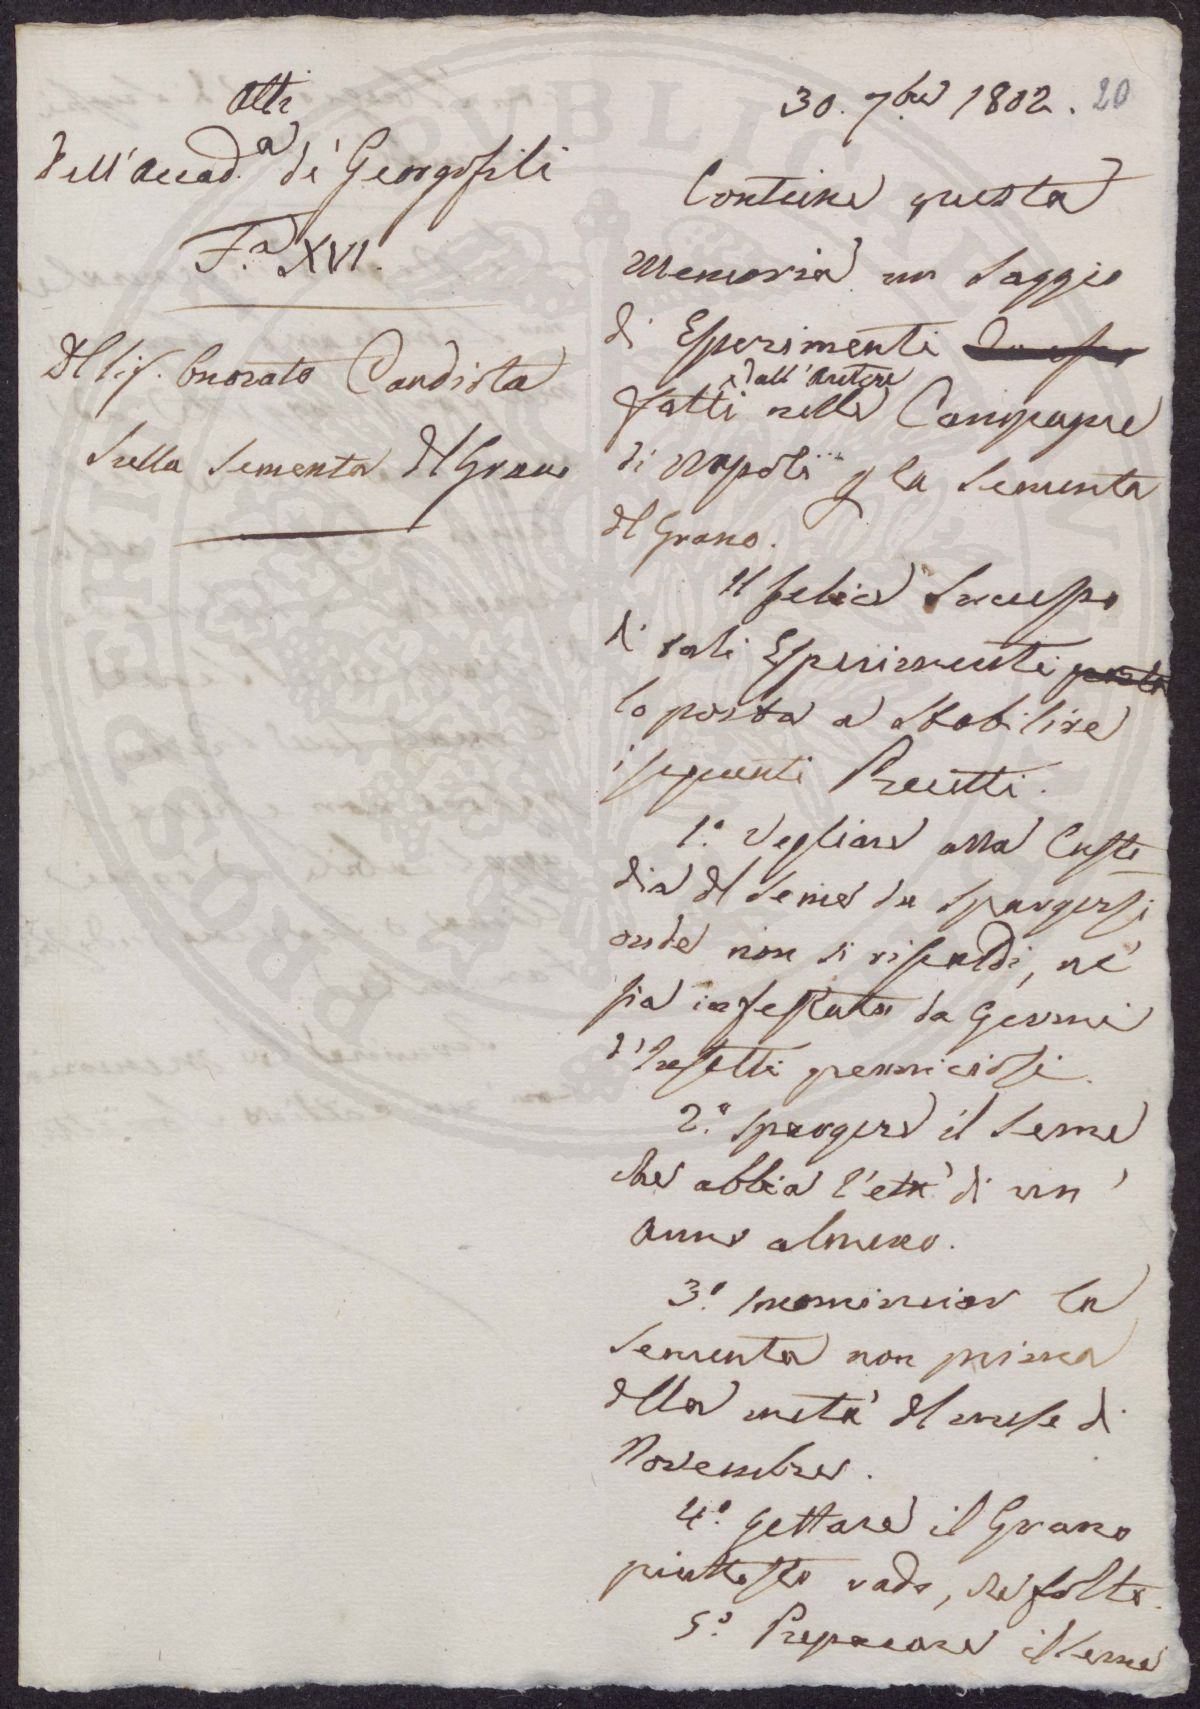 Atti
Dell'Accad.a de' Georgofili
F.a XVI.
Del Sig. Onorato Candiota
Sulla Sementa del Grano
30. 7bre 1802. 20
Contiene questa
Memoria un Saggio
di Esperimenti
dall'Autore
fatti nelle Campagne
di Napoli p la Sementa
del Grano.
Il felice Successo
di tali Esperimenti
lo porta a stabilire
i seguenti Precetti.
1.o Vegliare alla Custo
dia del Seme da Spargersi
onde non si riscaldi, ne'
sia infestato da Germi
d'Insetti perniciosi.
2.o Spargere il Seme
che abbia l'età di un'
Anno almeno.
3.o Incominciar la
Sementa non prima
della metà del mese di
Novembre.
4.o Gettare il Grano
piuttosto rado, che folto.
5.o Preparare il Seme